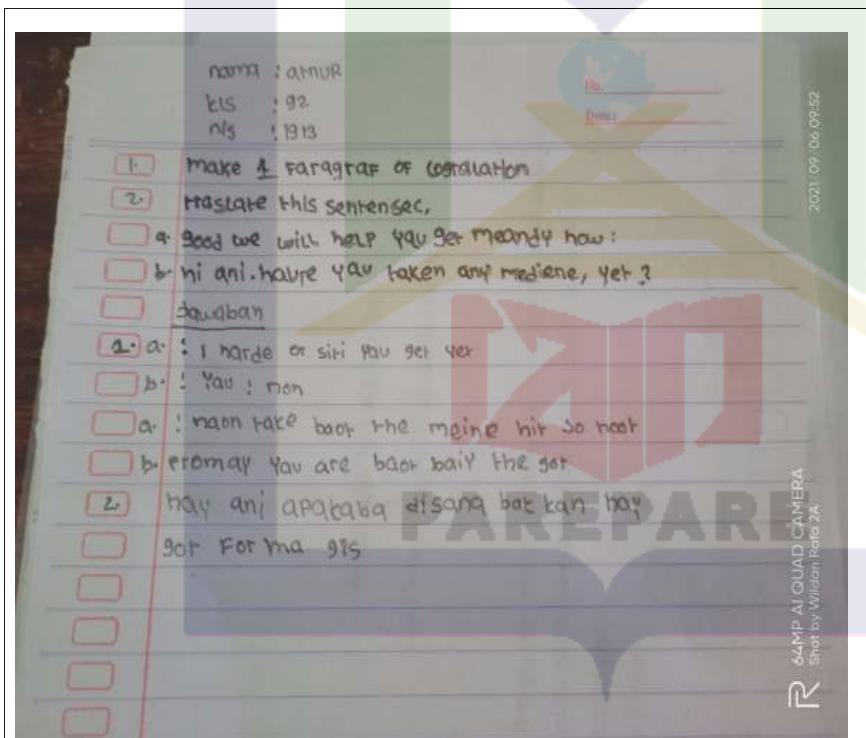 nama : amur
No.
kls : 92
Date:
n/s : 1913
1. make 1 Faragraf of cogralation
2. traslate this sentensec,
a. good we will help yau get meandy now :
b. hi ani. haure yau taken any mediene, yet ?
Jawaban
1. a. : I harde or siri yau get yet
b. : yau : mon
a. : naon take baot the meine hit so noot
b. eromay yau are baot baiy the got
2. hay ani apakaba disana bat kan hay
got For ma gis
PAREPARE
2021/09/06 09:52
64MP AI QUAD CAMERA
Shot by Wildan Rafa 2A